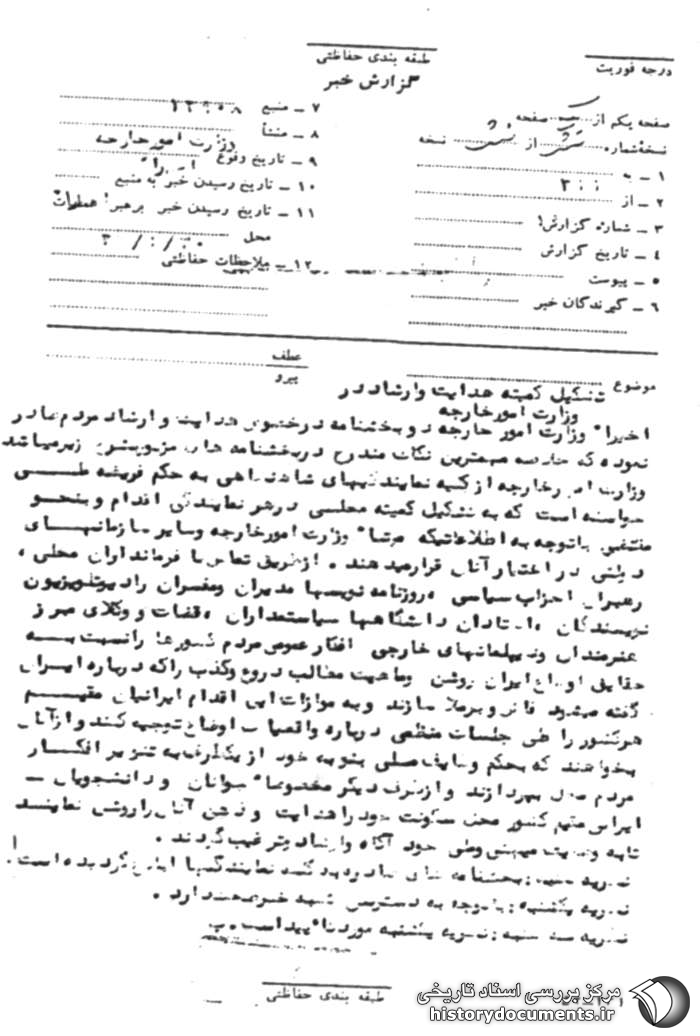 طبقه بندی حفاظتی
درجه فوریت
گزارش خبر
صفحه یکم از یک صفحه
نسخه شماره از نسخه
۱ ـ به
۲ ـ از
۳ ـ شماره گزارش
۴ ـ تاریخ گزارش
۵ ـ پیوست
۶ ـ گیرندگان خبر
۷ ـ منبع
۸ ـ منشأ وزارت امور خارجه
۹ ـ تاریخ وقوع
۱۰ ـ تاریخ رسیدن خبر به منبع
۱۱ ـ تاریخ رسیدن خبر برهبر عملیات
محل
۱۲ ـ ملاحظات حفاظتی
عطف
پیرو
موضوع تشکیل کمیته هدایت وارشاد در
وزارت امورخارجه
اخیرا" وزارت امور خارجه دو بخشنامه درخصوص هدایت و ارشاد مردم صادر
نموده که خلاصه مهمترین نکات مندرج در بخشنامه های مزبور بشرح زیر میباشد
وزارت امور خارجه از کلیه نمایندگیهای شاهنشاهی به حکم فریضه ملی
خواسته است که به تشکیل کمیته محلی در هر نمایندگی اقدام و بنحو
مقتضی باتوجه به اطلاعاتیکه وزارت امورخارجه وسایر سازمانهای
دولتی در اختیار آنان قرار میدهند ، ازطریق تماس با فرمانداران محلی ،
رهبران احزاب سیاسی ، روزنامه نویسها مدیران ومفسران رادیو تلویزیون
نویسندگان ، استادان دانشگاهها سیاستمداران ، قضات و وکلای مبرز
هنرمندان و دیپلماتهای خارجی افکار عمومی مردم کشورها را نسبت به
حقایق اوضاع ایران روشن وماهیت مطالب دروغ وکذب را که درباره ایران
گفته میشود فاش و برملا سازند و به موازات این اقدام ایرانیان مقیم
هر کشور را طی جلسات منظمی درباره واقعیات اوضاع توجیه کنند و از آنان
بخواهند که بحکم وظایف ملی بنوبه خود از یکطرف به تنویر افکار
مردم محل بپردازند و ازطرف دیگر مخصوصا" جوانان و دانشجویان ـ
ایرانی مقیم کشور محل سکونت خود را هدایت و ذهن آنان را روشن نمایند
تا به وظایف میهنی وطنی خود آگاه وارشاد وترغیب گردند .
نظریه شنبه : بخشنامه های صادره به کلیه نمایندگیها ابلاغ گردیده است .
نظریه یکشنبه : باتوجه به دسترسی شنبه خبر صحت دارد .
نظریه سه شنبه : نظریه یکشنبه مورد تایید است .
طبقه بندی حفاظتی
مرکز بررسی اسناد تاریخی
historydocuments.ir